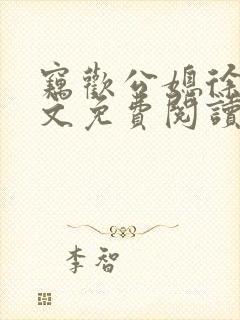 竊歡公媳徐
文免費閱讀
李智